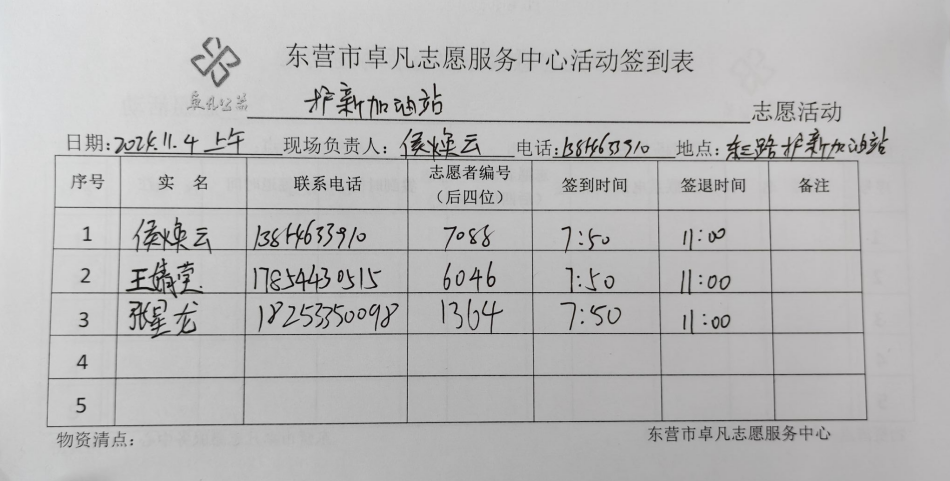 东营市卓凡志愿服务中心活动签到表
卓凡公益 护新加油站 志愿活动
日期:2024.11.4 上午 现场负责人:侯焕云 电话:13844633910 地点:东三路护新加油站
序号 实 名 联系电话 志愿者编号(后四位) 签到时间 签退时间 备注
1 侯焕云 13844633910 7088 7:50 11:00
2 王婧莹 17854430515 6046 7:50 11:00
3 张星龙 18253350098 1364 7:50 11:00
4
5
物资清点: 东营市卓凡志愿服务中心